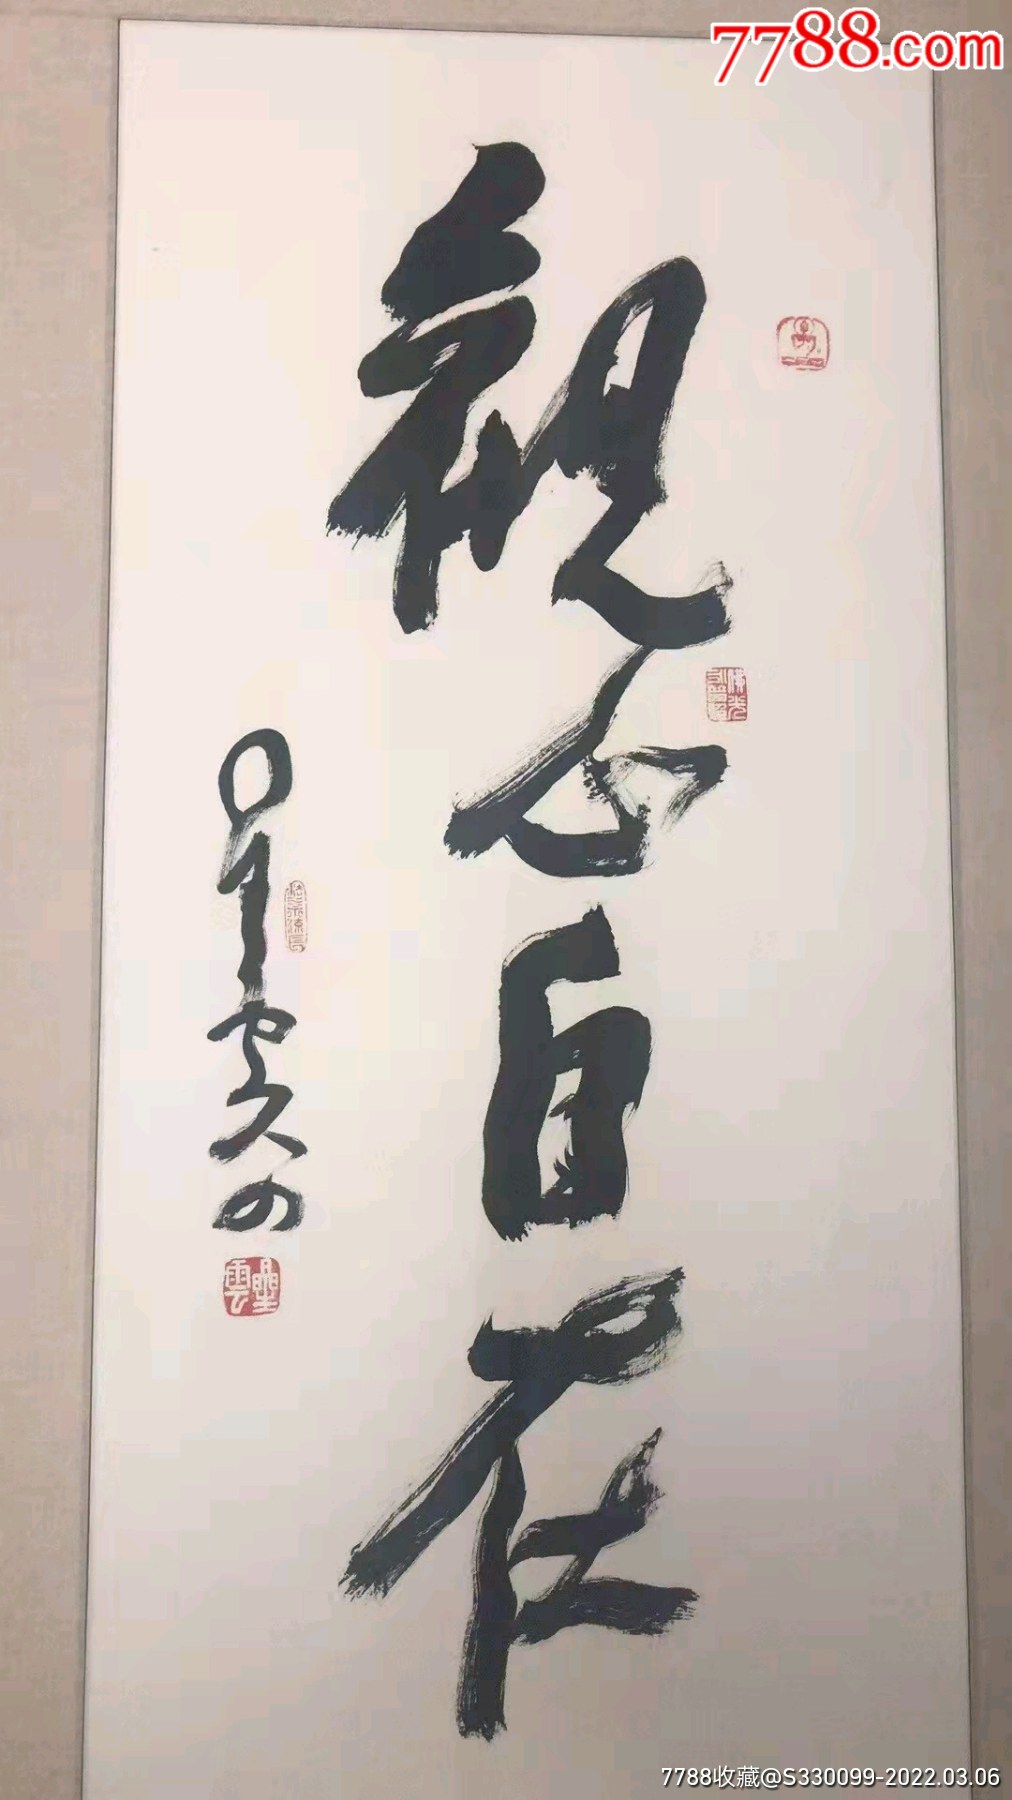 7788.com
觀心自在
星雲
星雲
7788收藏@S330099-2022.03.06